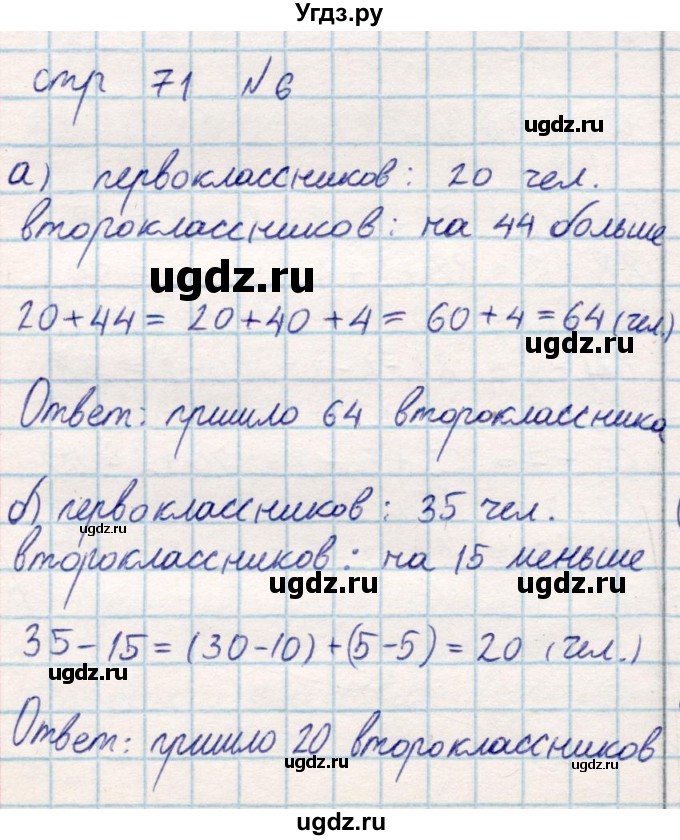 Угдз.ру
стр 71 №6
ugdz.ru
а) первоклассников: 20 чел.
второклассников: на 44 больше
ugdz.ru
20+44= 20+40+4= 60+4=64 (чел.)
ugdz.ru
Ответ: пришло 64 второклассника
б) первоклассников: 35 чел.
ugdz.ru
второклассников: на 15 меньше
ugdz.ru ugdz.ru
35-15=(30-10)+(5-5)=20 (чел.)
ugdz.ru
Ответ: пришло 20 второклассников
ugdz.ru ugdz.ru
ugdz.ru